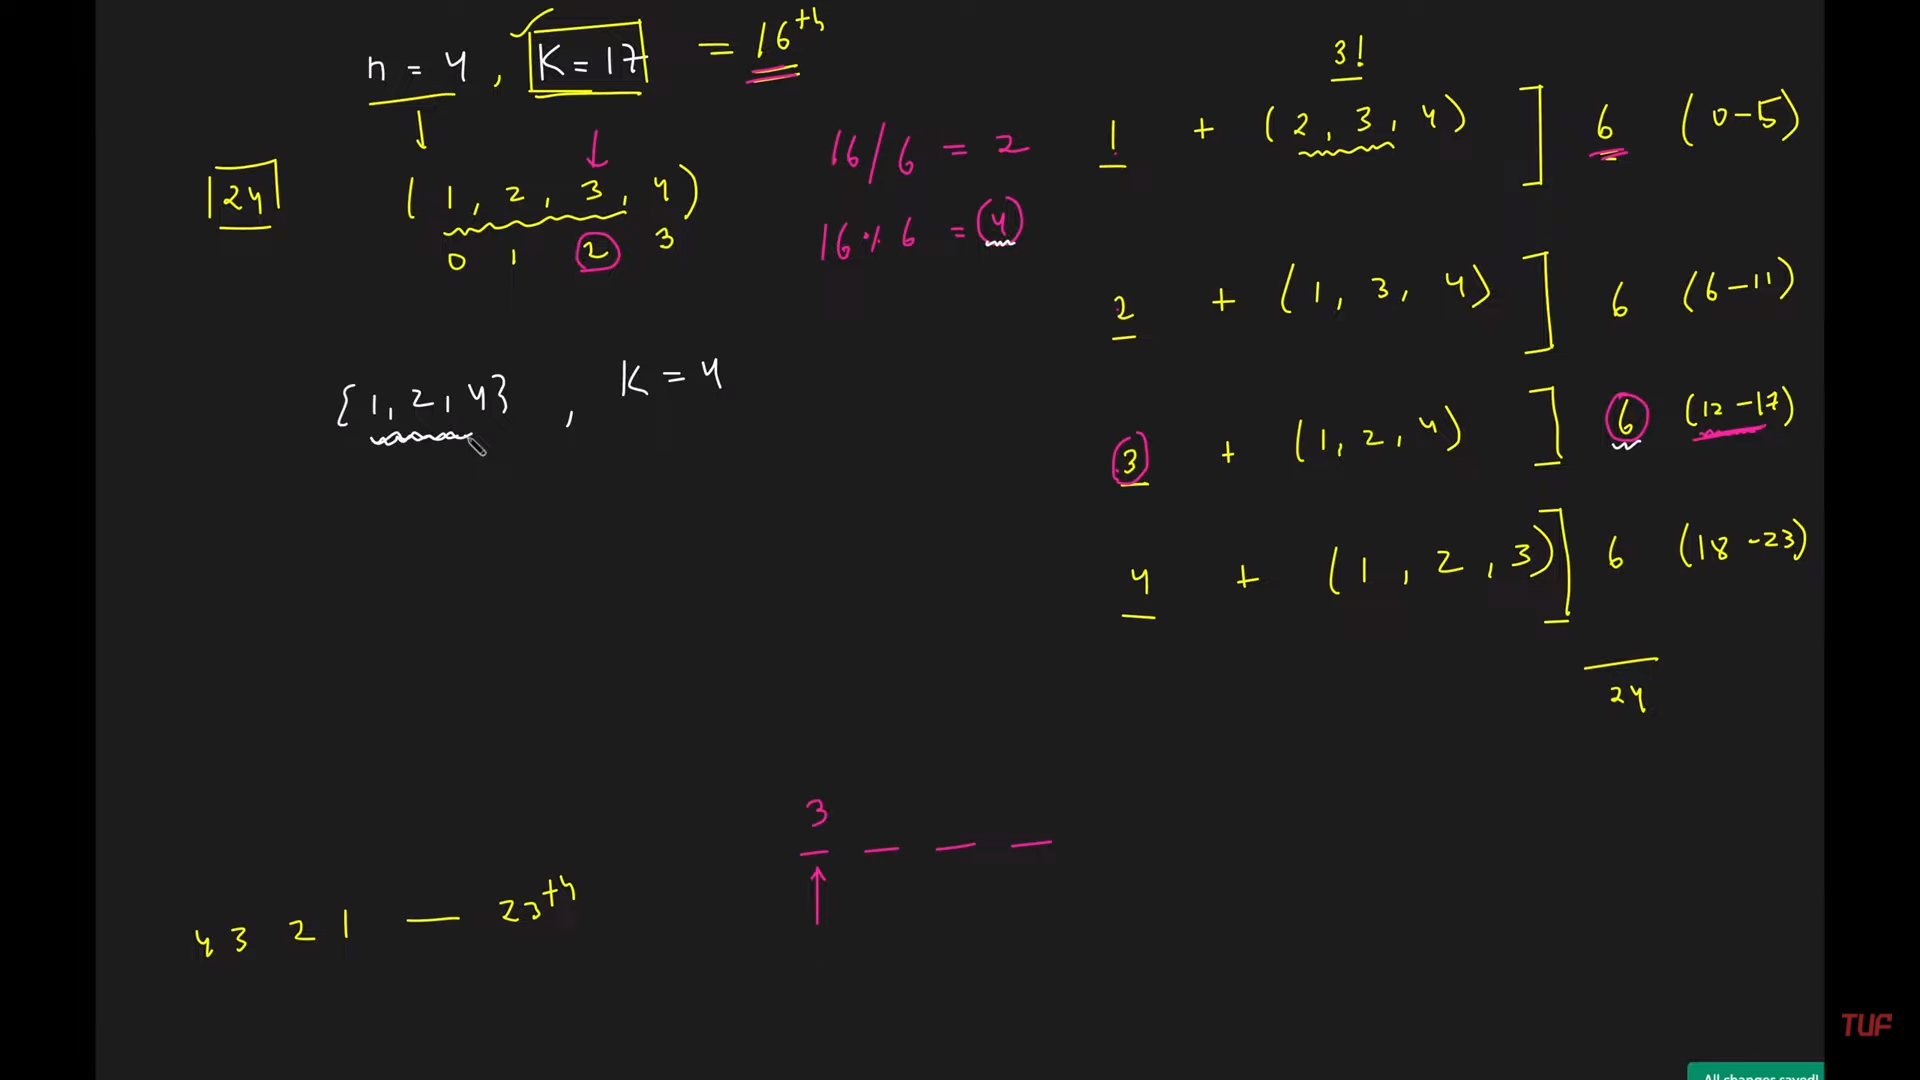 n = 4 , K = 17 = 16th
24
( 1 , 2 , 3 , 4 )
0 1 2 3
16 / 6 = 2
16 % 6 = 4
{ 1 , 2 , 4 } , K = 4
3!
1 + ( 2 , 3 , 4 ) ] 6 ( 0 - 5 )
2 + ( 1 , 3 , 4 ) ] 6 ( 6 - 11 )
3 + ( 1 , 2 , 4 ) ] 6 ( 12 - 17 )
4 + ( 1 , 2 , 3 ) ] 6 ( 18 - 23 )
24
3
_ _ _ _
4 3 2 1 — 23th
TUF
All changes saved!